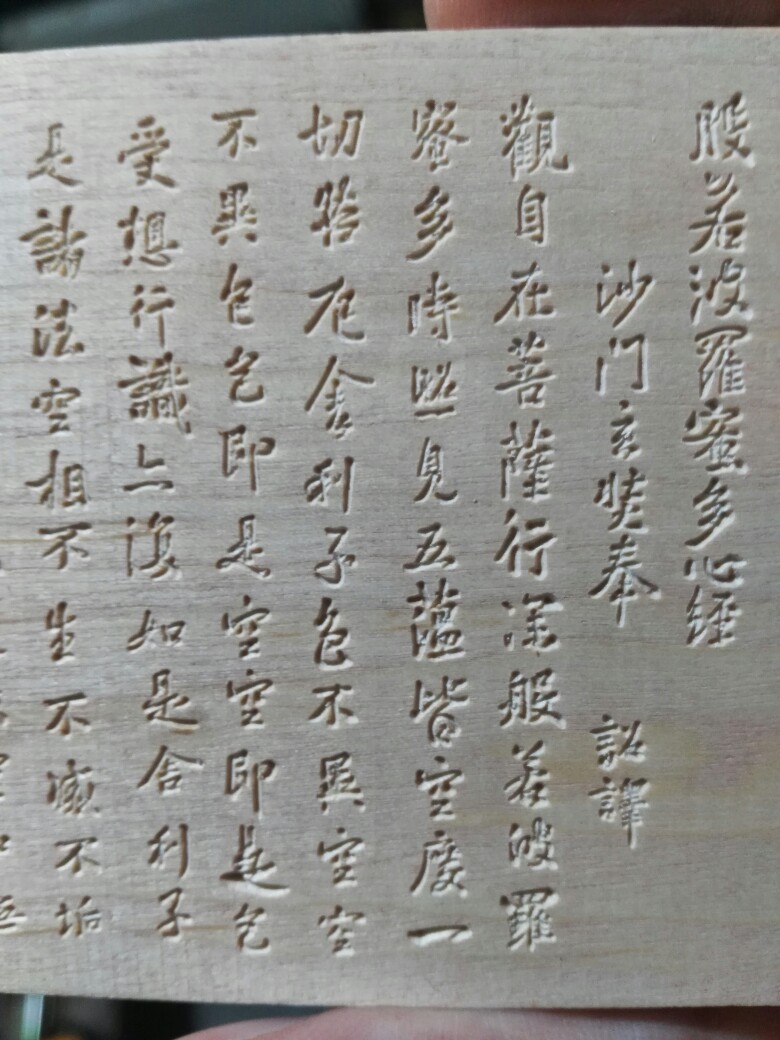 般若波羅蜜多心經
沙门玄奘奉 詔譯
觀自在菩薩行深般若波羅
蜜多時照見五蘊皆空度一
切苦厄舍利子色不異空空
不異色色即是空空即是色
受想行識亦復如是舍利子
是諸法空相不生不滅不垢